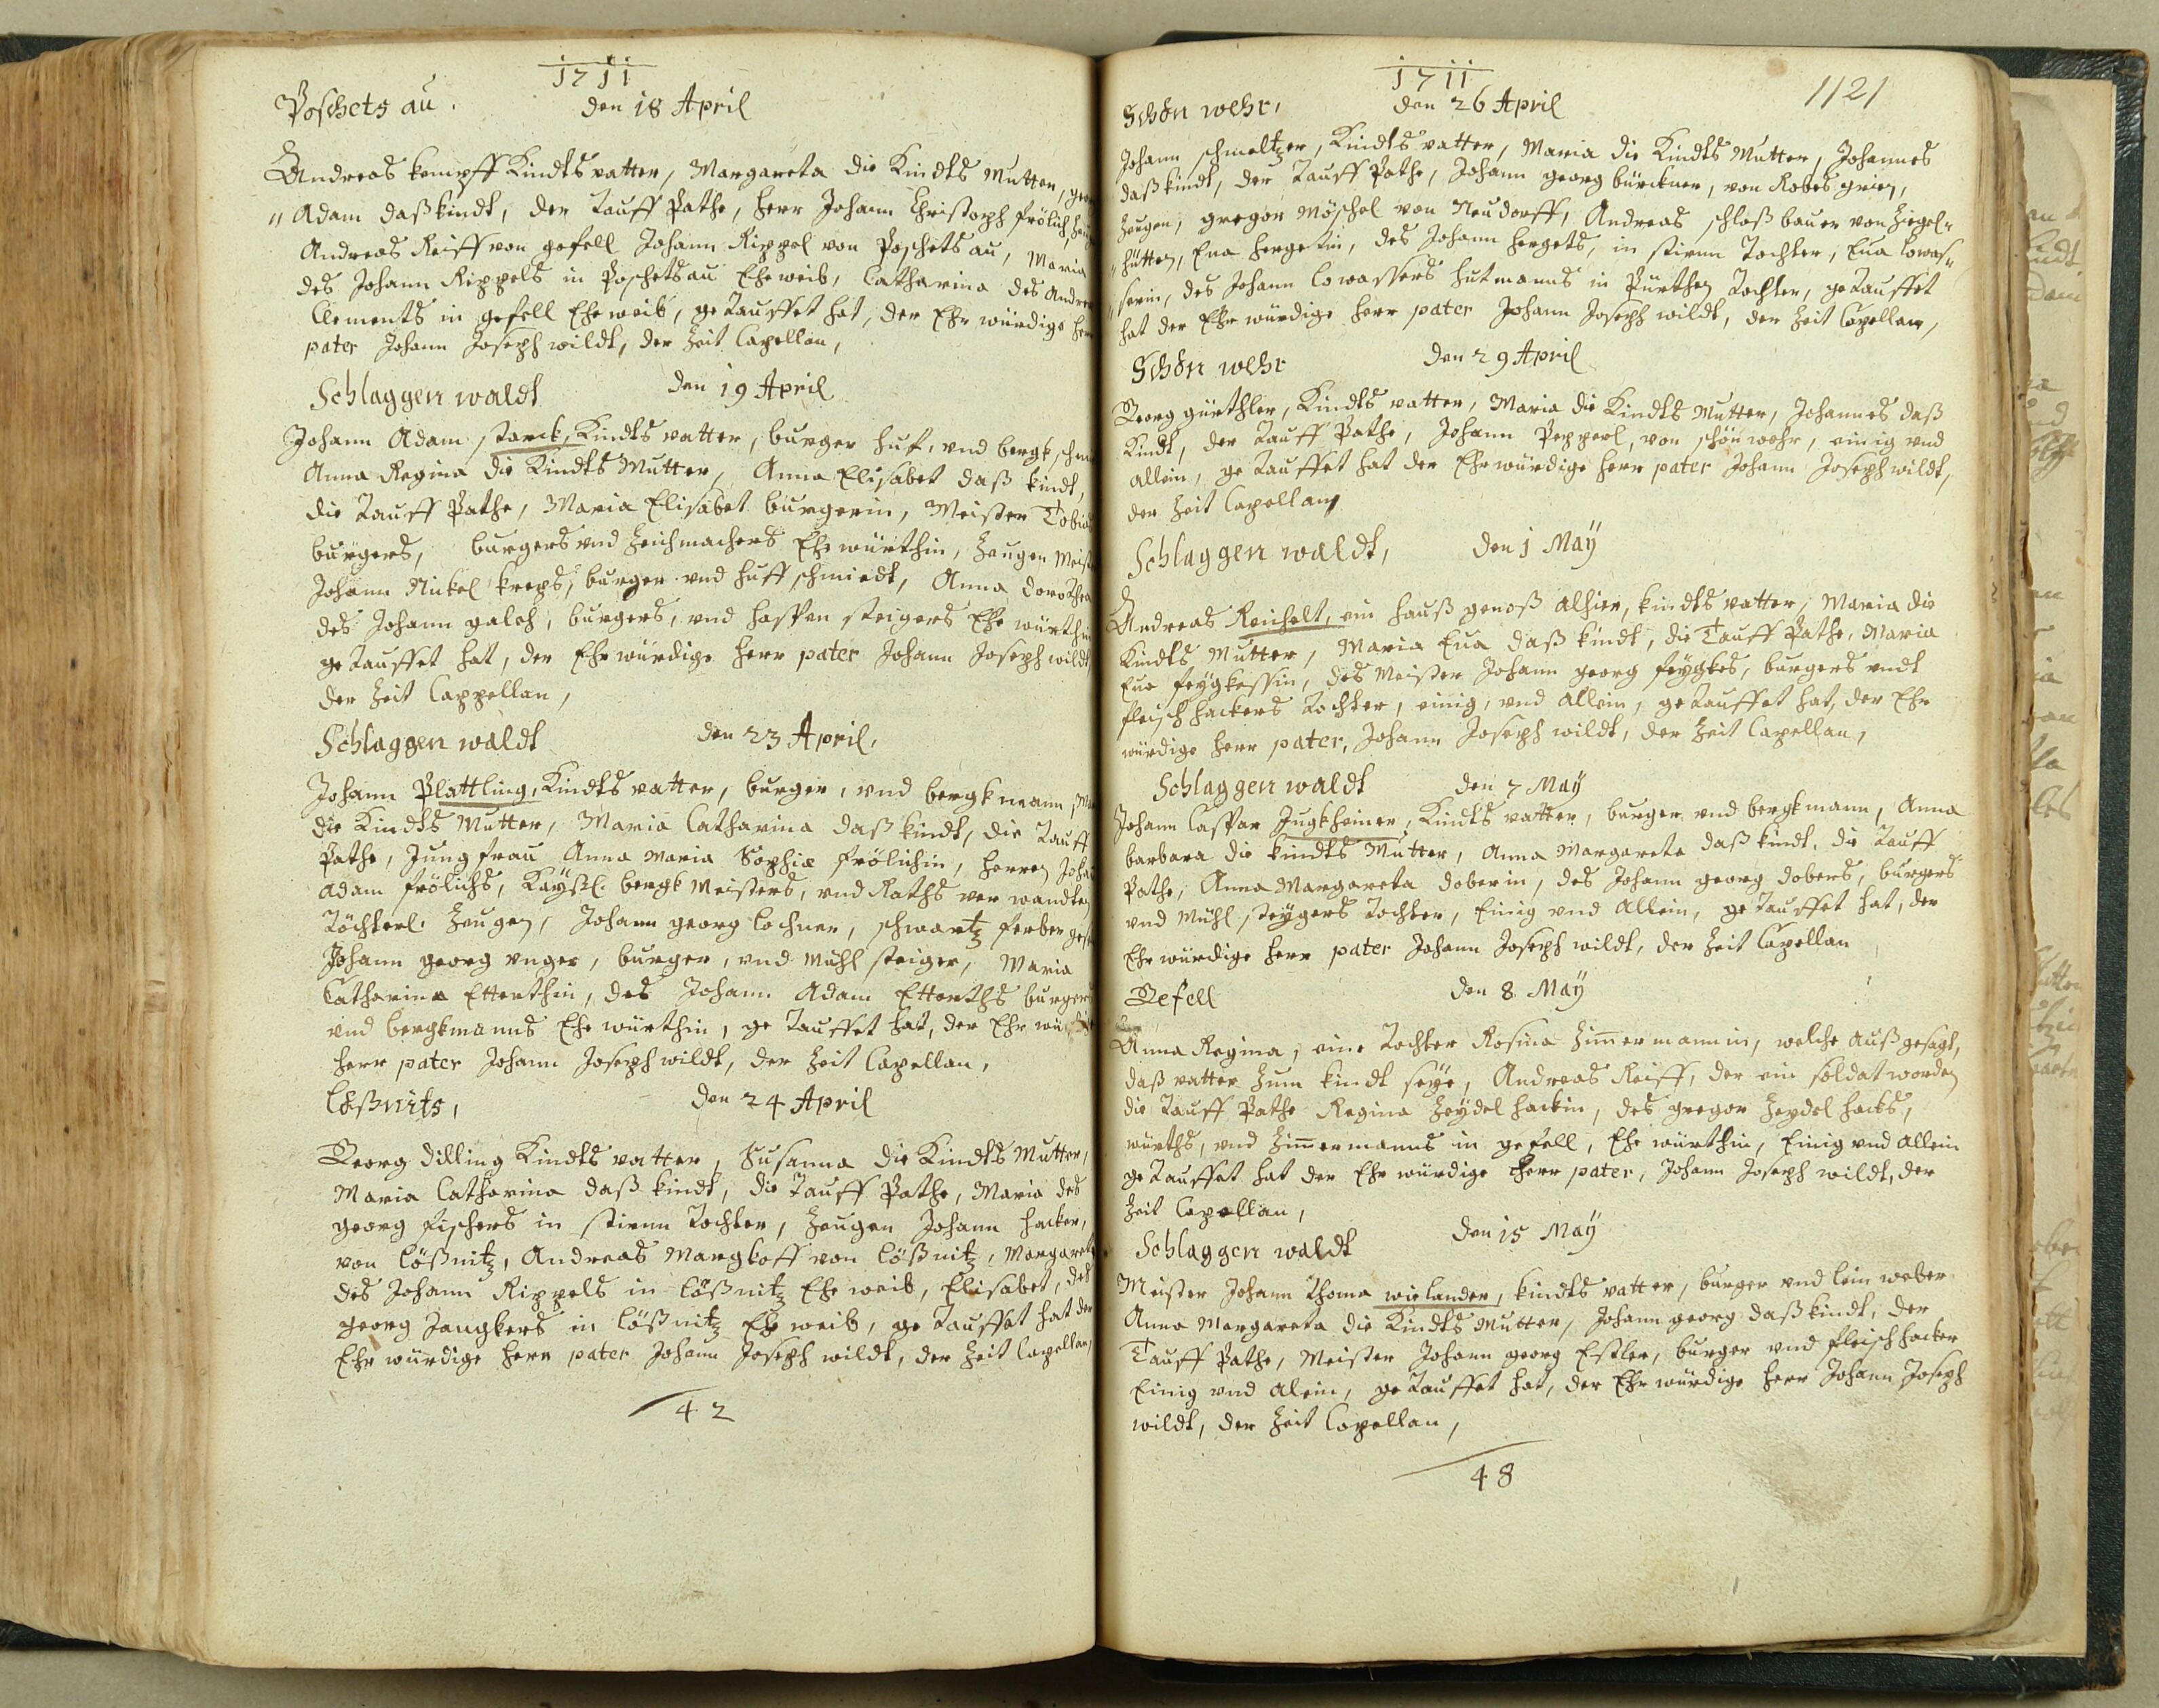 1711
Poschets au. den 18 April
Andreas kempff Kindts vatter, Margareta die Kindts Mutter,
Adam daß kindt, der Tauff Pathe, herr Johann Christoph frölich,
Andreas Reiff von gefell Johann Rippel von Poschets au, Maria
des Johann Rippels in Poschetsau Ehe weib, Catharina des
Clements in gefell Ehe weib, ge Tauffet hat, der Ehr würdige
pater Johann Joseph wildt, der Zeit Capellan,
Schlaggen waldt den 19 April
Johann Adam starck, Kindts vatter, burger huf, vnd bergk
Anna Regina die Kindts Mutter, Anna Elisabet daß kindt,
die Tauff Pathe, Maria Elisabet burgerin, Meister
burgers, burgers vnd Zeichmachers Ehe würthin, Zeugen
Johann Nickel kreps, burger vnd huff schmiedt, Anna Dorothea
des Johann galch, burgers, vnd haspen steigers Ehe
ge Tauffet hat, der Ehr würdige herr pater Johann Joseph wildt
der Zeit Cappellan,
Schlaggen waldt den 23 April,
Johann Plattling, Kindts vatter, burger, vnd bergkmann,
die Kindts Mutter, Maria Catharina daß kindt, die Tauff
Pathe, Jungfrau Anna Maria Sophia frölichin, herren
Adam frölichs, Kayßl. bergk Meisters, vnd Raths ver wandten
Töchterl. Zeugen, Johann georg lochner, schwartz ferber
Johann georg vnger, burger, vnd Mühl steiger, Maria
Catharina Etterthin, des Johann Adam Etterths
vnd bergkmanns Ehe würthin, ge Tauffet hat, der Ehr
herr pater Johann Joseph wildt, der Zeit Capellan,
Lößnits, den 24 April
Georg dilling Kindts vatter, Susanna die Kindts Mutter,
Maria Catharina daß kindt, die Tauff Pathe, Maria des
georg fischers in stirnn Tochter, Zeugen Johann hacker,
von lößnitz, Andreas Margkoff von lößnitz,
des Johann Rippels in lößnitz Ehe weib, Elisabet, des
georg Jangkers in lößnitz Ehe weib, ge Tauffet hat der
Ehr würdige herr pater Johann Joseph wildt, der Zeit Capellan,
42
1711
1121
Schön wehr, den 26 April
Johann schmeltzer, Kindts vatter, Maria die Kindts Mutter, Johannes
daß kindt, der Tauff Pathe, Johann georg bürckner, von
Zeugen, gregor Möschel von Neudorff, Andreas schloß bauer von Ziegel„
„hütten, Eva hergetin, des Johann hergets, in stirnn Tochter, Eua lowas„
serin, des Johann lowassers hutmanns in Pürthen Tochter, ge Tauffet
hat der Ehr würdige herr pater Johann Joseph wildt, der Zeit Capellan,
Schön wehr den 29 April
Georg gürthler, Kindts vatter, Maria die Kindts Mutter, Johannes daß
Kindt, der Tauff Pathe, Johann Pepperl, von schön wehr, einig vnd
allein, ge Tauffet hat der Ehr würdige herr pater Johann Joseph wildt,
der Zeit Capellan,
Schlaggen waldt, den 1 May
Andreas Reichelt, ein hauß genoß alhier, kindts vatter, Maria die
Kindts Mutter, Maria Eua daß kindt, die Tauff Pathe, Maria
Eua des Meister Johann georg burgers vndt
fleischhackers Tochter, einig, vnd allein, ge Tauffet hat, der Ehr
würdige herr pater, Johann Joseph wildt, der Zeit Capellan,
Schlaggen waldt den 7 May
Johann Caspar Jugkheiner, Kindts vatter, burger vnd bergkmann, Anna
barbara die kindts Mutter, Anna Margareta daß kindt, die Tauff
Pathe, Anna Margareta doberin, des Johann georg dobers, burgers
vnd Mühl steygers Tochter, Einig vnd Allein, ge Tauffet hat, der
Ehr würdige herr pater Johann Joseph wildt, der Zeit Capellan
Gefell den 8 May
Anna Regina, eine Tochter Rosina Zimmermannin, welche außgesagt,
daß vatter zum kindt seye, Andreas Reiff, der ein soldat worden
die Tauff Pathe Regina Zeydel hackin, des gregor Zeydel hacks,
würths, vnd Zimmermanns in gefell, Ehe würthin, Einig vnd allein
ge Tauffet hat der Ehr würdige herr pater, Johann Joseph wildt, der
Zeit Capellan,
Schlaggen waldt den 15 May
Meister Johann Thoma wielander, kindts vatter, burger vnd lein weber
Anna Margareta die Kindts Mutter, Johann georg daß kindt, der
Tauff Pathe, Meister Johann georg Estler, burger vnd fleischhacker
Einig vnd alein, ge Tauffet hat, der Ehr würdige herr Johann Joseph
wildt, der Zeit Capellan,
48